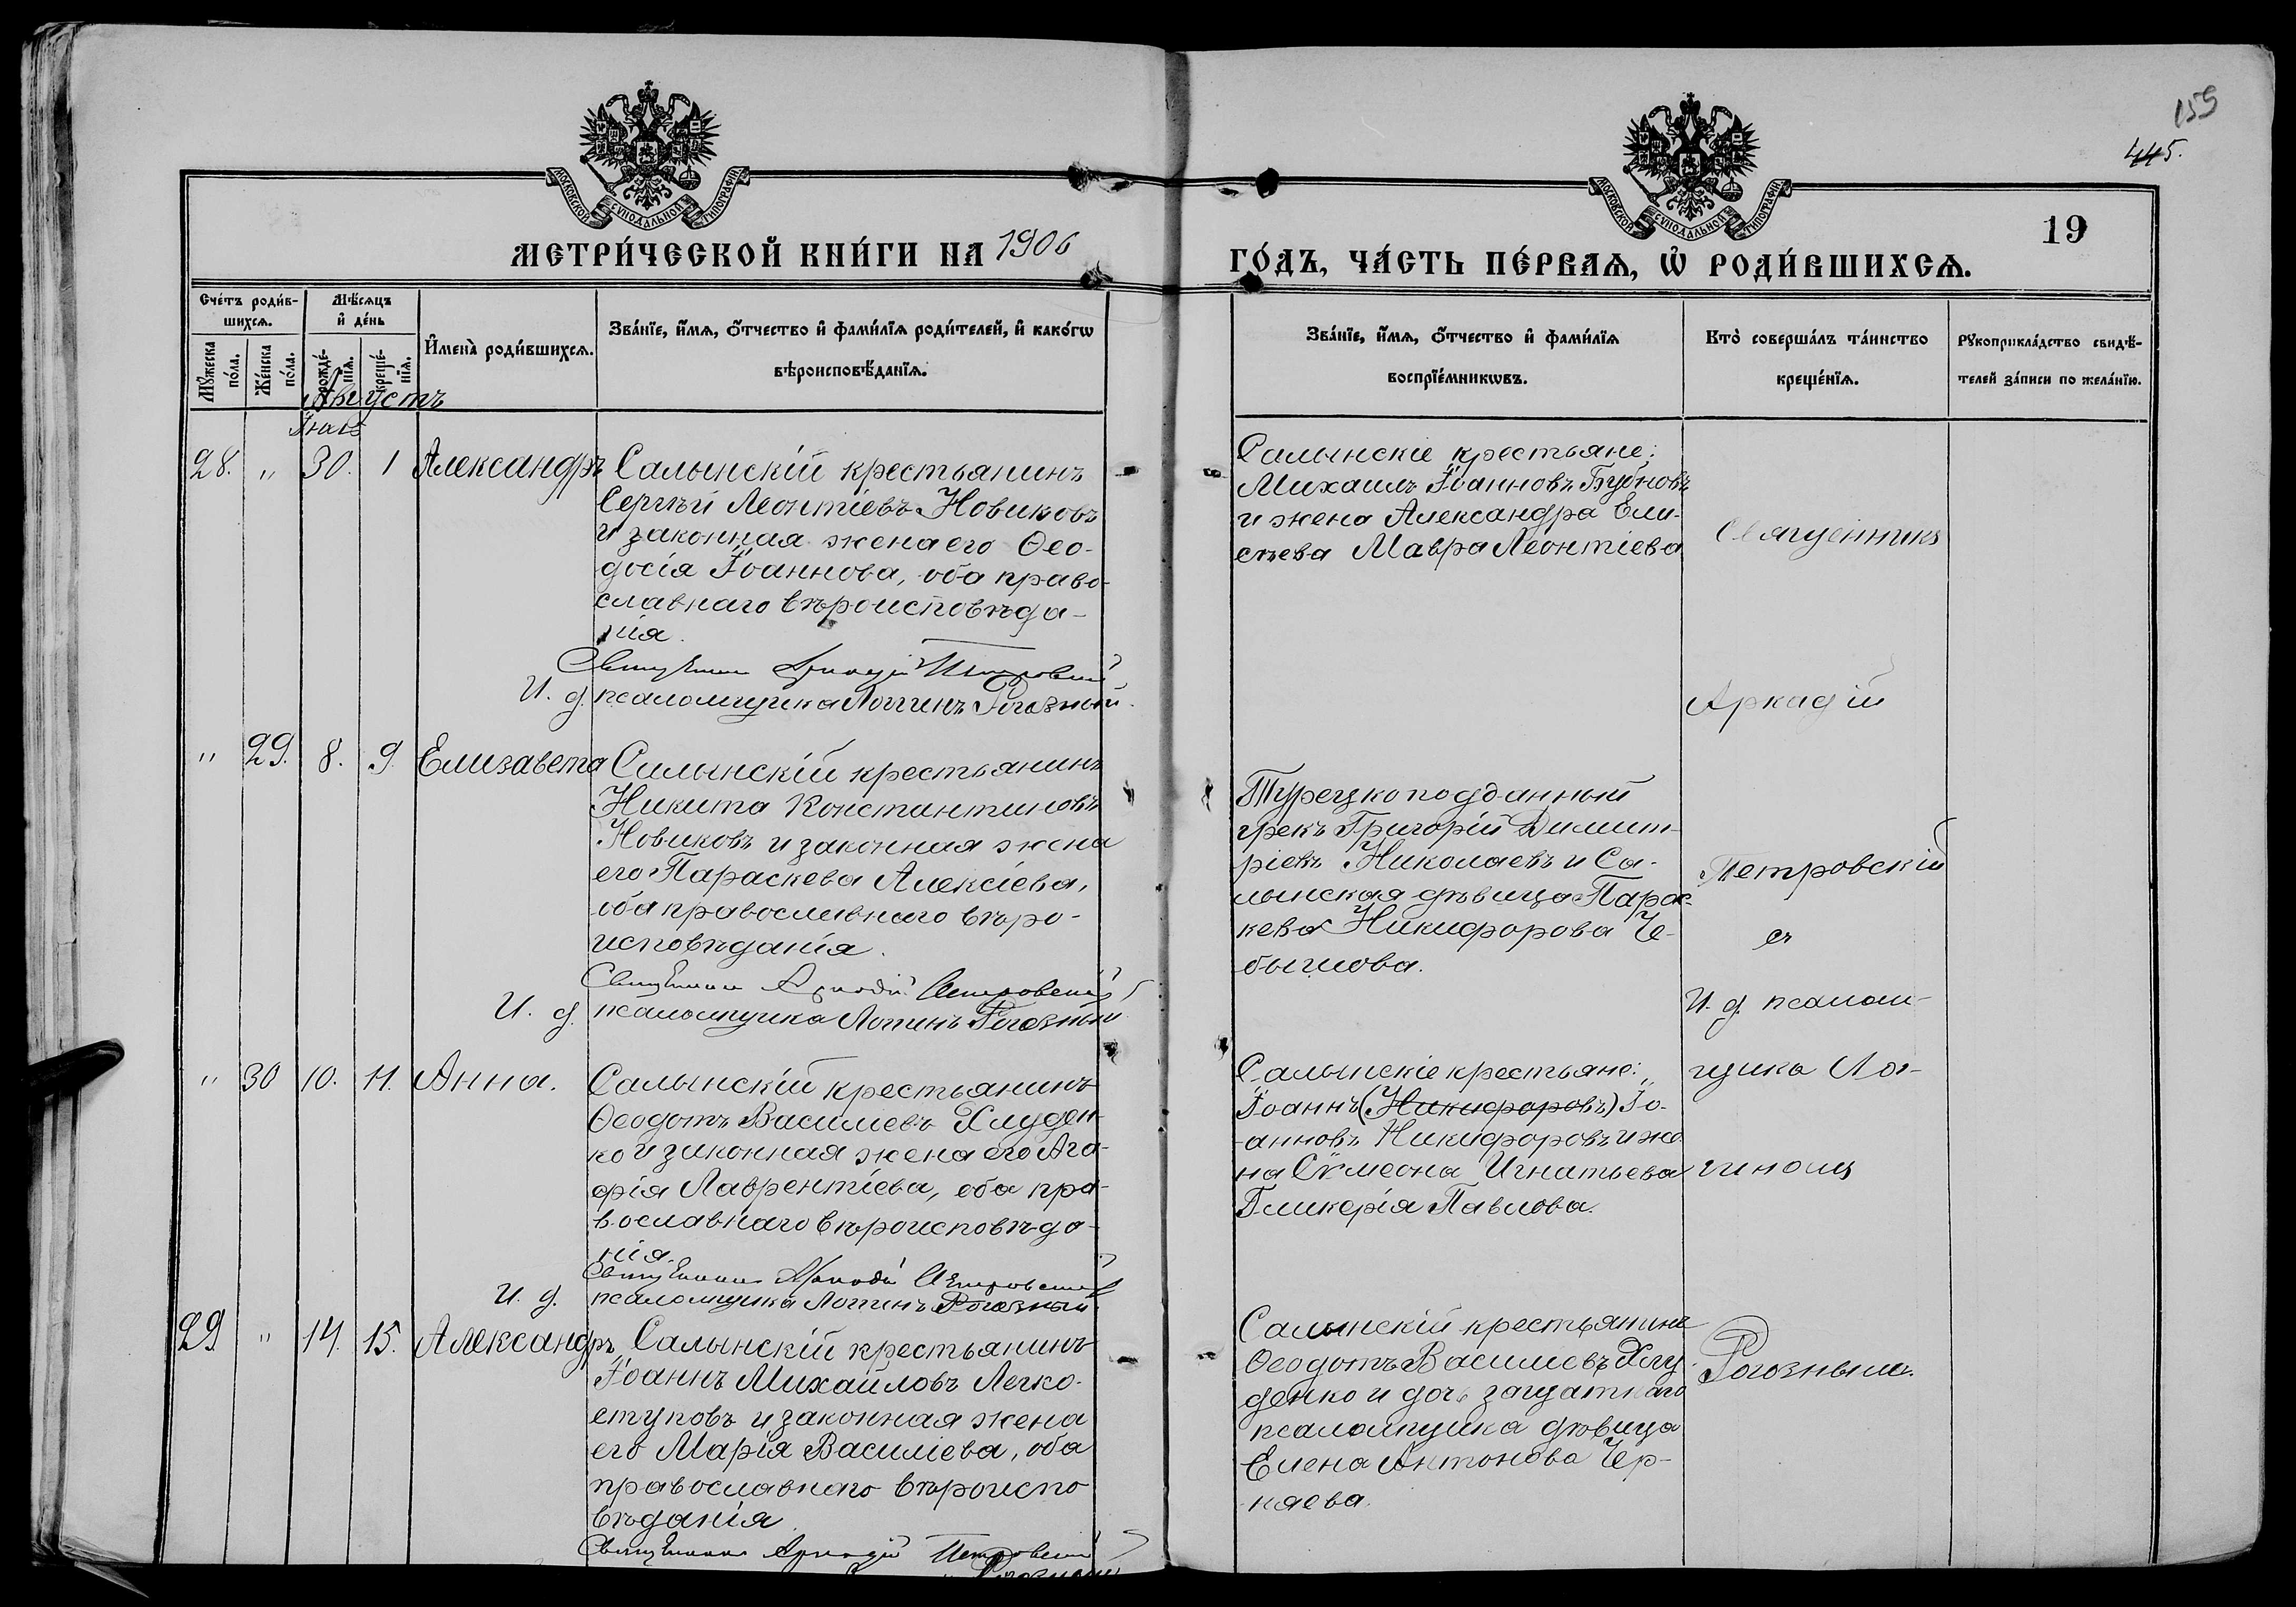 159
445.
19
МОСКОВСКОЙ СѴНОДАЛЬНОЙ ТИПОГРАФІИ
МОСКОВСКОЙ СѴНОДАЛЬНОЙ ТИПОГРАФІИ
МЕТРИ́ЧЕСКОЙ КНИ́ГИ НА 1906
ГО́ДЪ, ЧА́СТЬ ПЕ́РВАѦ, Ѡ҆ РОДИ́ВШИХСѦ.
Сче́тъ роди́в-
шихсѧ.
Мѣ́сяцъ
и҆ де́нь
Мꙋ́жеска
по́ла.
Же́нска
по́ла.
рожде́-
нїѧ.
креще́-
нїѧ.
И҆мена̀ роди́вшихсѧ.
Зва́нїе, и҆́мѧ, ѻ҆́тчество и҆ фами́лїѧ роди́телей, и҆ како́гѡ
вѣроисповѣ́данїѧ.
Зва́нїе, и҆́мѧ, ѻ҆́тчество и҆ фами́лїѧ
воспрїе́мникѡвъ.
Кто̀ соверша́лъ та́инство
креще́нїѧ.
Рꙋкоприкла́дство свидѣ́-
телей за́писи по жела́нїю.
Августъ
28. " 30. 1 Александръ
Салынскій крестьянинъ
Сергѣй Леонтіевъ Новиковъ
и законная жена его Ѳео-
досія Іоаннова, оба право-
славнаго вѣроисповѣда-
нія.
Священникъ Аркадій Петровскій
И. д. псаломщика Логгинъ Рогозный.
Салынскіе крестьяне:
Михаилъ Іоанновъ Бубновъ
и жена Александра Ели-
сѣева Мавра Леонтіева
Священникъ
Аркадій
Петровскій
съ
И. д. псалом-
щика Лог-
гиномъ
Рогознымъ.
" 29. 8. 9. Елизавета
Салынскій крестьянинъ
Никита Константиновъ
Новиковъ и законная жена
его Параскева Алексіева,
оба православнаго вѣро-
исповѣданія.
Священникъ Аркадій Петровскій
И. д. псаломщика Логгинъ Рогозный
Турецкоподданный
грекъ Григорій Димит-
ріевъ Николаевъ и Са-
лынская дѣвица Парас-
кева Никифорова Че-
бышова.
" 30 10. 11. Анна.
Салынскій крестьянинъ
Ѳеодотъ Василіевъ Хлуден-
ко и законная жена его Ага-
фія Лаврентіева, оба пра-
вославнаго вѣроисповѣда-
нія.
Священникъ Аркадій Петровскій
И. д. псаломщика Логгинъ Рогозный.
Салынскіе крестьяне:
Іоаннъ (Никифоровъ) Іо-
анновъ Никифоровъ и же-
на Сѵмеона Игнатьева
Гликерія Павлова.
29 " 14. 15. Александръ
Салынскій крестьянинъ
Іоаннъ Михайловъ Легко-
ступовъ и законная жена
его Марія Василіева, оба
православнаго вѣроиспо
вѣданія.
Священникъ Аркадій Петровскій
Рогозный
Салынскій крестьянинъ
Ѳеодотъ Василіевъ Хлу-
денко и дочь заштатнаго
псаломщика дѣвица
Елена Антонова Чер-
няева.